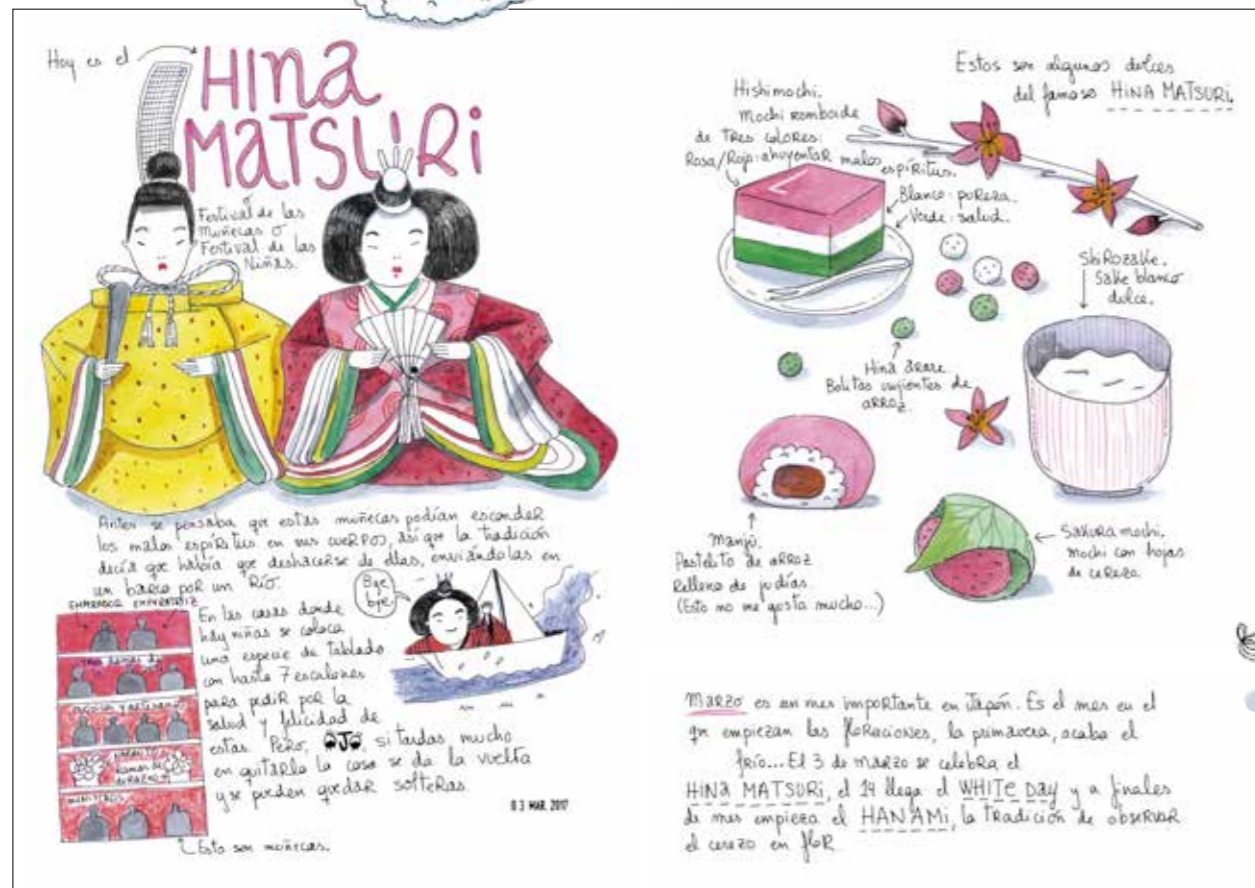 Hoy es el
HINA
MATSURI
Festival de las
Muñecas o
Festival de las
Niñas.
Antes se pensaba que estas muñecas podían esconder
los malos espíritus en sus cuerpos, así que la tradición
decía que había que deshacerse de ellas, enviándolas en
un barco por un río.
Bye
bye.
EMPERADOR EMPERATRIZ
TRES DAMAS DE
MÚSICOS Y ARTESANOS
MINISTROS
En las casas donde
hay niñas se coloca
una especie de tablado
con hasta 7 escalones
para pedir por la
salud y felicidad de
estas. Pero, OJO, si tardas mucho
en quitarlo la cosa se da la vuelta
y se pueden quedar solteras.
03 MAR. 2017
Esto son muñecas.
Estos son algunos dulces
del famoso HINA MATSURI.
Hishimochi.
Mochi romboide
de tres colores:
Rosa/Rojo: ahuyentar malos
espíritus.
Blanco: pureza.
Verde: salud.
Shirozake.
Sake blanco
dulce.
Hina arare.
Bolitas crujientes de
arroz.
Manjū.
Pastelito de arroz
relleno de judías.
(Esto no me gusta mucho...)
Sakura mochi.
Mochi con hojas
de cerezo.
Marzo es un mes importante en Japón. Es el mes en el
que empiezan las floraciones, la primavera, acaba el
frío... El 3 de marzo se celebra el
HINA MATSURI, el 14 llega el WHITE DAY y a finales
de mes empieza el HANAMI, la tradición de observar
el cerezo en flor